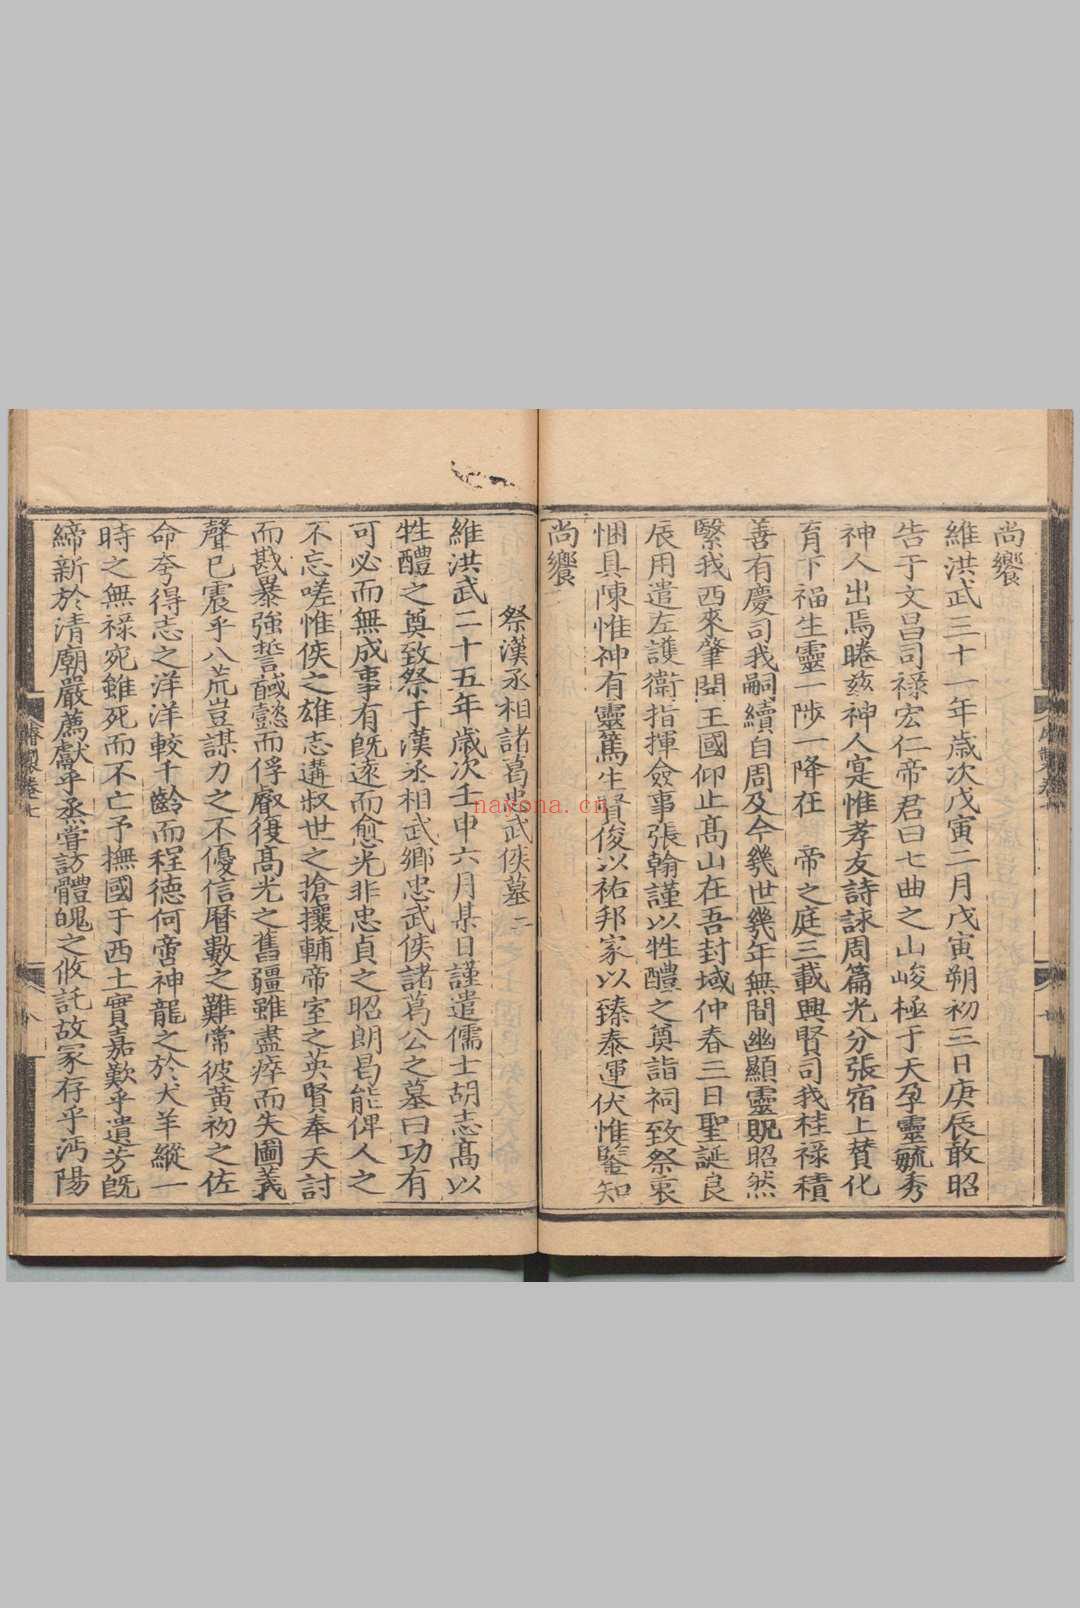 尚饗
維洪武三十一年歲次戊寅二月戊寅朔初三日庚辰敢昭
告于文昌司祿宏仁帝君曰七曲之山峻極于天孕靈毓秀
神人出焉睠玆神人寔惟孝友詩詠周篇光分張宿上賛化
育下福生靈一陟一降在帝之庭三載興賢司我桂祿積
善有慶司我嗣續自周及今幾世幾年無間幽顯靈貺昭然
繄我西來肇開王國仰止髙山在吾封域仲春三日聖誕良
辰用遣左護衛指揮僉事張翰謹以牲醴之奠詣祠致祭衷
悃具陳惟神有靈篤生賢俊以祐邦家以臻泰運伏惟鑒知
尚饗
祭漢丞相諸葛忠武侯墓二
維洪武二十五年歲次壬申六月某日謹遣儒士胡志髙以
牲醴之奠致祭于漢丞相武鄉忠武侯諸葛公之墓曰功有
可必而無成事有旣遠而愈光非忠貞之昭朗曷能俾人之
不忘嗟惟侯之雄志遘叔世之搶攘輔帝室之英賢奉天討
而戡暴強誓馘懿而俘叡復髙光之舊疆雖盡瘁而失圖義
聲已震乎八荒豈謀力之不優信曆數之難常彼黃初之佐
命夸得志之洋洋較千齡而程德何啻神龍之於犬羊縱一
時之無祿宛雖死而不亡予撫國于西土實嘉歎乎遺芳旣
締新於清廟嚴薦獻乎烝嘗訪體魄之攸託故冡存乎沔陽
nayona.cn